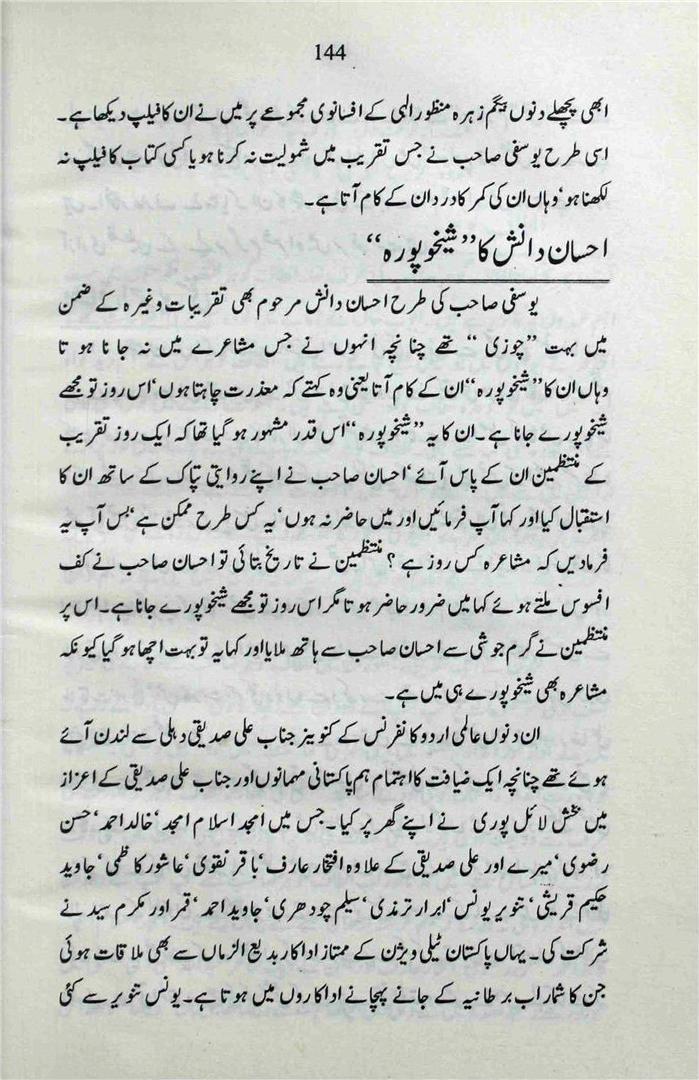 144
ابھی پچھلے دنوں بیگم زہرہ منظور الہی کے افسانوی مجموعے پر میں نے ان کا فیلپ دیکھا ہے۔
اسی طرح یوسفی صاحب نے جس تقریب میں شمولیت نہ کرنا ہو یا کسی کتاب کا فیلپ نہ
لکھنا ہو‘ وہاں ان کی کمر کا درد ان کے کام آتا ہے۔
احسان دانش کا ’’شیخوپورہ‘‘
یوسفی صاحب کی طرح احسان دانش مرحوم بھی تقریبات وغیرہ کے ضمن
میں بہت ’’چوزی‘‘ تھے چنانچہ انہوں نے جس مشاعرے میں نہ جانا ہوتا
وہاں ان کا ’’شیخوپورہ‘‘ ان کے کام آتا یعنی وہ کہتے کہ معذرت چاہتا ہوں‘ اس روز تو مجھے
شیخوپورے جانا ہے۔ ان کا یہ ’’شیخوپورہ‘‘ اس قدر مشہور ہو گیا تھا کہ ایک روز تقریب
کے منتظمین ان کے پاس آئے‘ احسان صاحب نے اپنے روایتی تپاک کے ساتھ ان کا
استقبال کیا اور کہا آپ فرمائیں اور میں حاضر نہ ہوں‘ یہ کس طرح ممکن ہے‘ بس آپ یہ
فرما دیں کہ مشاعرہ کس روز ہے؟ منتظمین نے تاریخ بتائی تو احسان صاحب نے کف
افسوس ملتے ہوئے کہا میں ضرور حاضر ہوتا مگر اس روز تو مجھے شیخوپورے جانا ہے۔ اس پر
منتظمین نے گرم جوشی سے احسان صاحب سے ہاتھ ملایا اور کہا یہ تو بہت اچھا ہو گیا کیونکہ
مشاعرہ بھی شیخوپورے ہی میں ہے۔
ان دنوں عالمی اردو کانفرنس کے کنوینر جناب علی صدیقی دہلی سے لندن آئے
ہوئے تھے چنانچہ ایک ضیافت کا اہتمام ہم پاکستانی مہمانوں اور جناب علی صدیقی کے اعزاز
میں بخش لائل پوری نے اپنے گھر پر کیا۔ جس میں امجد اسلام امجد‘ خالد احمد‘ حسن
رضوی‘ میرے اور علی صدیقی کے علاوہ افتخار عارف‘ باقر نقوی‘ عاشور کاظمی‘ جاوید
حکیم قریشی‘ تنویر یونس‘ ابرار ترمذی‘ سلیم چودھری‘ جاوید احمد‘ قمر اور مکرم سید نے
شرکت کی۔ یہاں پاکستان ٹیلی ویژن کے ممتاز اداکار بدیع الزماں سے بھی ملاقات ہوئی
جن کا شمار اب برطانیہ کے جانے پہچانے اداکاروں میں ہوتا ہے۔ یونس تنویر سے کئی